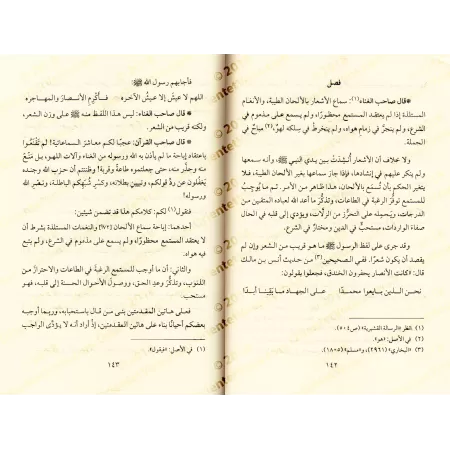 فصل
* قال صاحب الغناء(١): سماع الأشعار بالألحان الطيبة، والأنغام
المستلذة إذا لم يعتقد المستمع محظورًا، ولم يسمع على مذموم في
الشرع، ولم ينجرَّ في زمام هواه، ولم ينخرط في سلكه لهوٌ(٢) مباحٌ في
الجملة.
ولا خلاف أن الأشعار أُنشِدَتْ بين يدي النبي ﷺ، وأنه سمعها
ولم ينكر عليهم في إنشادها، فإذا جاز سماعها بغير الألحان الطيبة فلا
يتغير الحكم بأن تُسمَع بالألحان، هذا ظاهر من الأمر. ثم ما يُوجِبُ
للمستمع توفُّر الرغبة في الطاعات، وتذكُّر ما أعد الله لعباده المتقين من
الدرجات، ويحمله على التحرُّز من الزلَّات، ويؤدي إلى قلبه في الحال
صفاء الواردات، مستحبٌّ في الدين ومختارٌ في الشرع.
وقد جرى على لفظ الرسول ﷺ ما هو قريب من الشعر وإن لم
يقصد أن يكون شعرًا. ففي الصحيحين(٣) من حديث أنس بن مالك
قال: «كانت الأنصار يحفرون الخندق، فجعلوا يقولون:
نحــن الــذين بايعوا محمــدًا على الجهاد مــا بَقِيْنا أبدًا
(١) انظر «الرسالة القشيرية» (ص٥٠٤).
(٢) في الأصل: «هو».
(٣) «البخاري» (٢٩٦١)، و«مسلم» (١٨٠٥).
١٤٢
فأجابهم رسول الله ﷺ:
اللهم لا عيشَ إلا عيشُ الآخره فــأكْرِمِ الأنــصارَ والمهــاجره
* قال صاحب الغناء: ليس هذا اللفظ منه ﷺ على وزن الشعر،
ولكنه قريب من الشعر.
* قال صاحب القرآن: عجبًا لكم معاشرَ السماعاتية! لم تَقْنَعُوا
بإعتقاد إباحة ما لم يأذن به الله ورسوله من الغناء وآلات اللهو، بل مَنَعَ
منه وحذَّر منه، حتى جعلتموه طاعةً وقربةً! وظننتم أن حزب الله وجنده
يَغفُلون عن ردِّ قولكم، وتبيين بطلانه، وكسْرِ شُبَهِكم الباطلة، ونَصْرِ الله
ورسوله.
فنقول(١) لكم: كلامكم هذا قد تضمن شيئين:
أحدهما: إباحة سماع الألحان [٧٥أ] والنغمات المستلذة بشرط أن
لا يعتقد المستمع محظورًا، ولم يسمع على مذموم في الشرع، ولم يتبع
فيه هواه.
والثاني: أن ما أوجب للمستمع الرغبة في الطاعات والاحتراز من
الذنوب، وتذكُّر وعد الحق، ووصولَ الأحوال الحسنة إلى قلبه، فهو
مستحب.
فعلى هاتين المقدمتين بَنَى من قال باستحبابه، وربما أوجبه
بعضكم أحيانًا بناء على هاتين المقدمتين، إذْ أراد أنه لا يؤدَّى الواجب
(١) في الأصل: «فيقول».
١٤٣